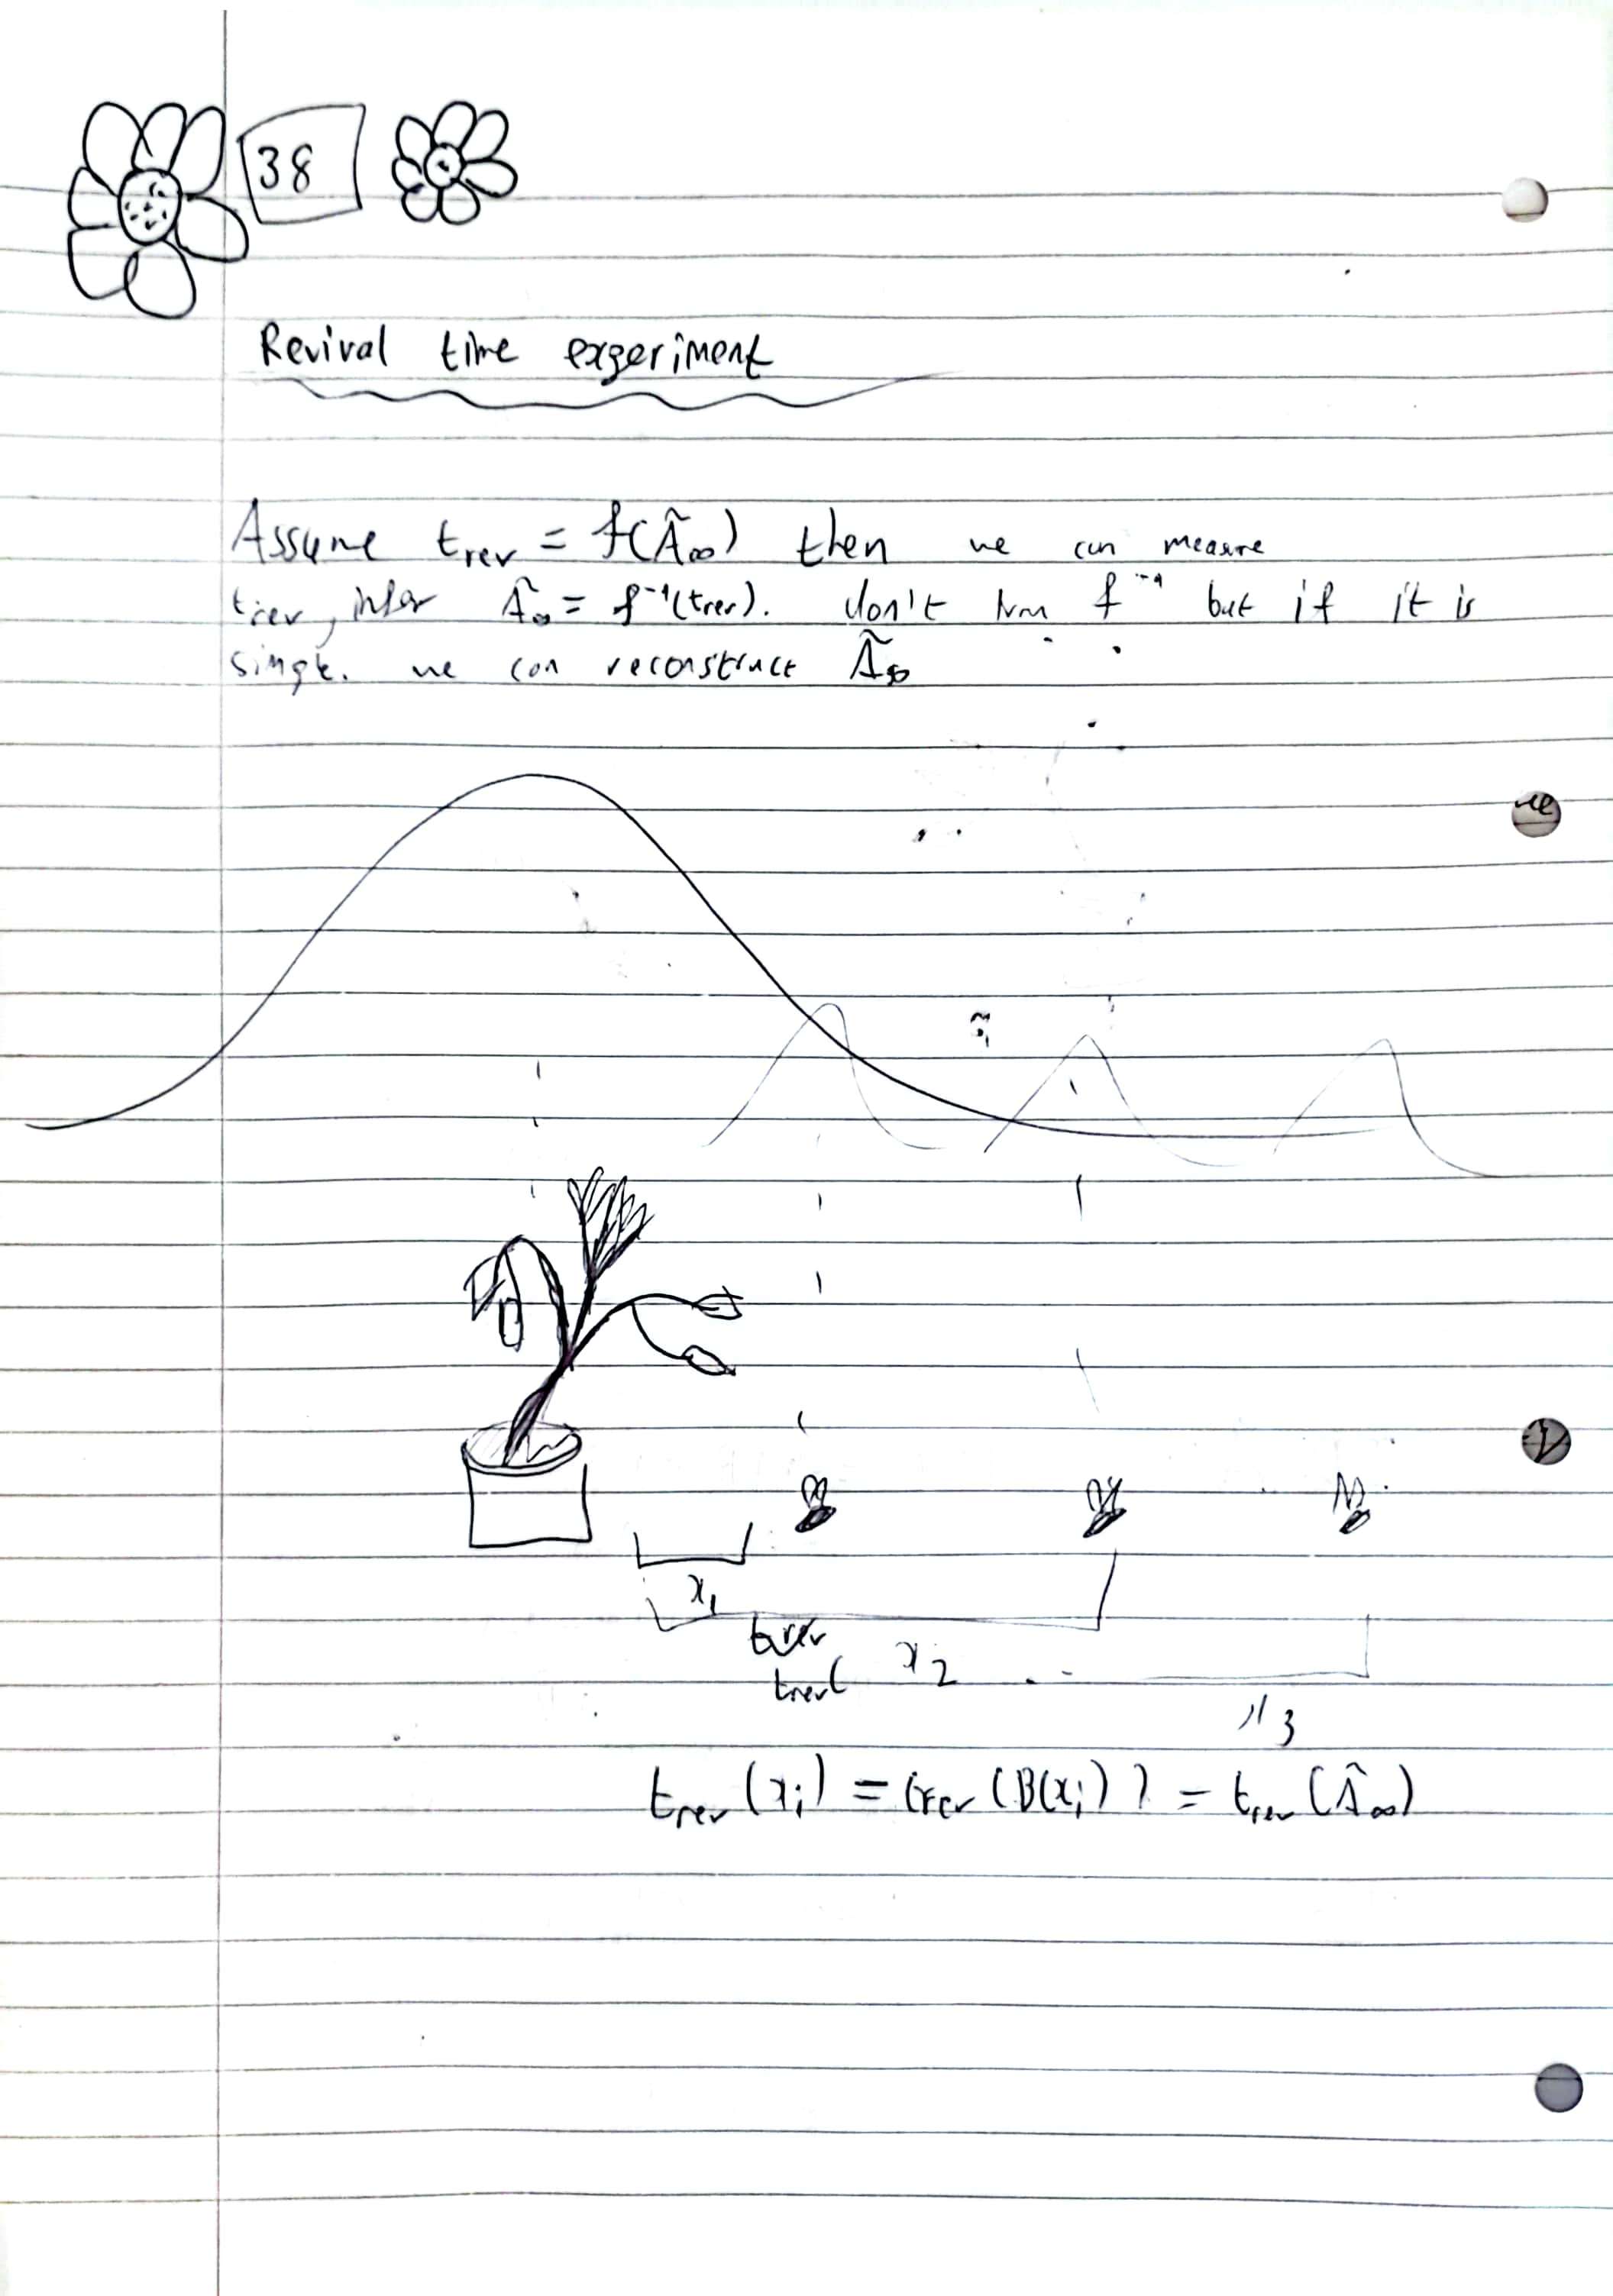 38
Revival time experiment
Assume t_rev = f(Ã∞) then we can measure
t_rev, infer Ã∞ = f⁻¹(t_rev). don't know f⁻¹ but if it is
simple. we can reconstruct Ã∞
x₁
t_rev
t_rev( x₂
x₃
t_rev(xᵢ) = t_rev(B(xᵢ)) = t_rev(Ã∞)